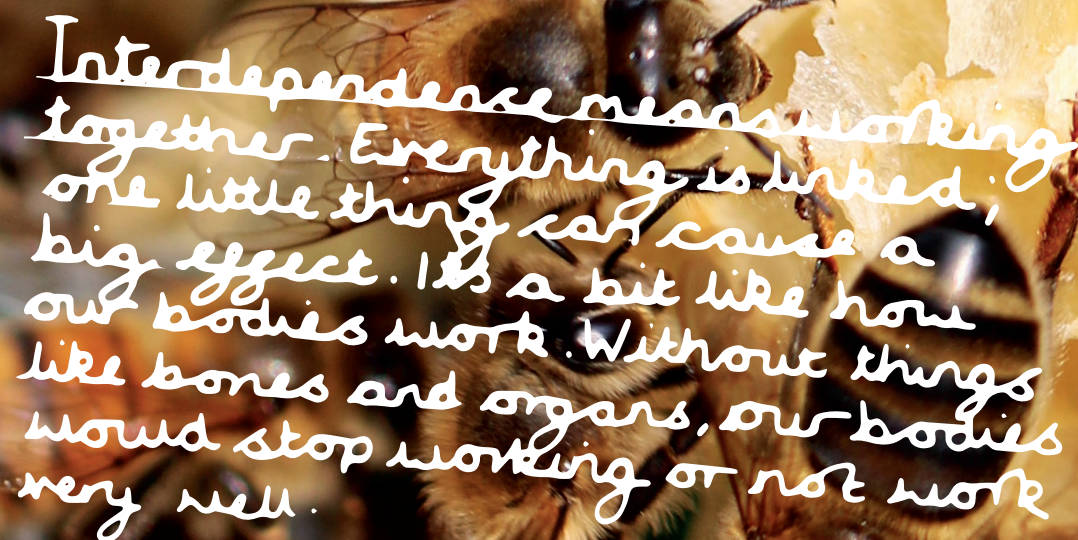 Interdependence means working
together. Everything is linked;
one little thing can cause a
big effect. It's a bit like how
our bodies work. Without things
like bones and organs, our bodies
would stop working or not work
very well.